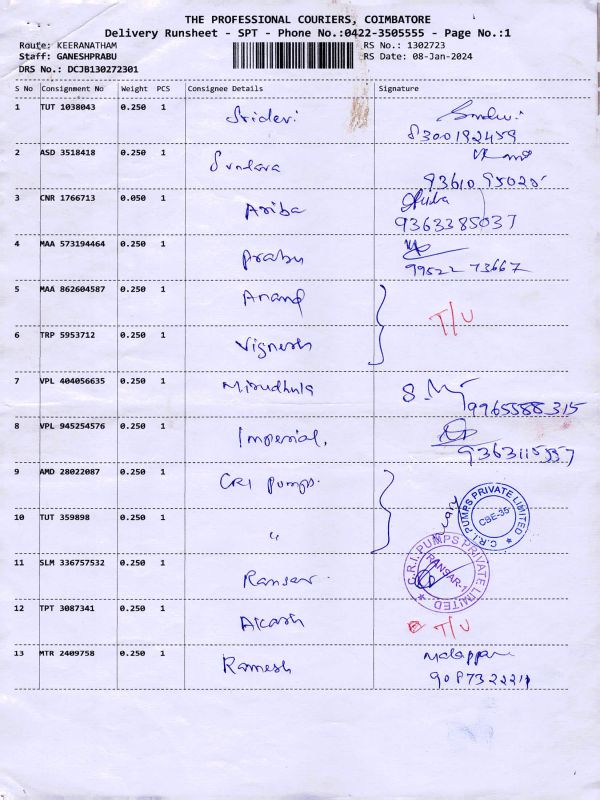 THE PROFESSIONAL COURIERS, COIMBATORE
Delivery Runsheet - SPT - Phone No.:0422-3505555 - Page No.:1
Route: KEERANATHAM RS No.: 1302723
Staff: GANESHPRABU RS Date: 08-Jan-2024
DRS No.: DCJB130272301
S No Consignment No Weight PCS Consignee Details Signature
1 TUT 1038043 0.250 1 Sridevi
8300192459
2 ASD 3518418 0.250 1 Sundara
9361095025
3 CNR 1766713 0.050 1 Ariba
9363385037
4 MAA 573194464 0.250 1 Prabu
99522 73667
5 MAA 862604587 0.250 1 Anand T/U
6 TRP 5953712 0.250 1 Vignesh
7 VPL 404056635 0.250 1 Mirudhula
9965588315
8 VPL 945254576 0.250 1 Imperial,
9363115557
9 AMD 28022087 0.250 1 CRI Pumps.
C.R.I. PUMPS PRIVATE LIMITED
CBE-35
10 TUT 359898 0.250 1 "
11 SLM 336757532 0.250 1 Ransar.
C.R.I. PUMPS PRIVATE LIMITED
RANSAR-1
12 TPT 3087341 0.250 1 Akash T/U
13 MTR 2409758 0.250 1 Ramesh